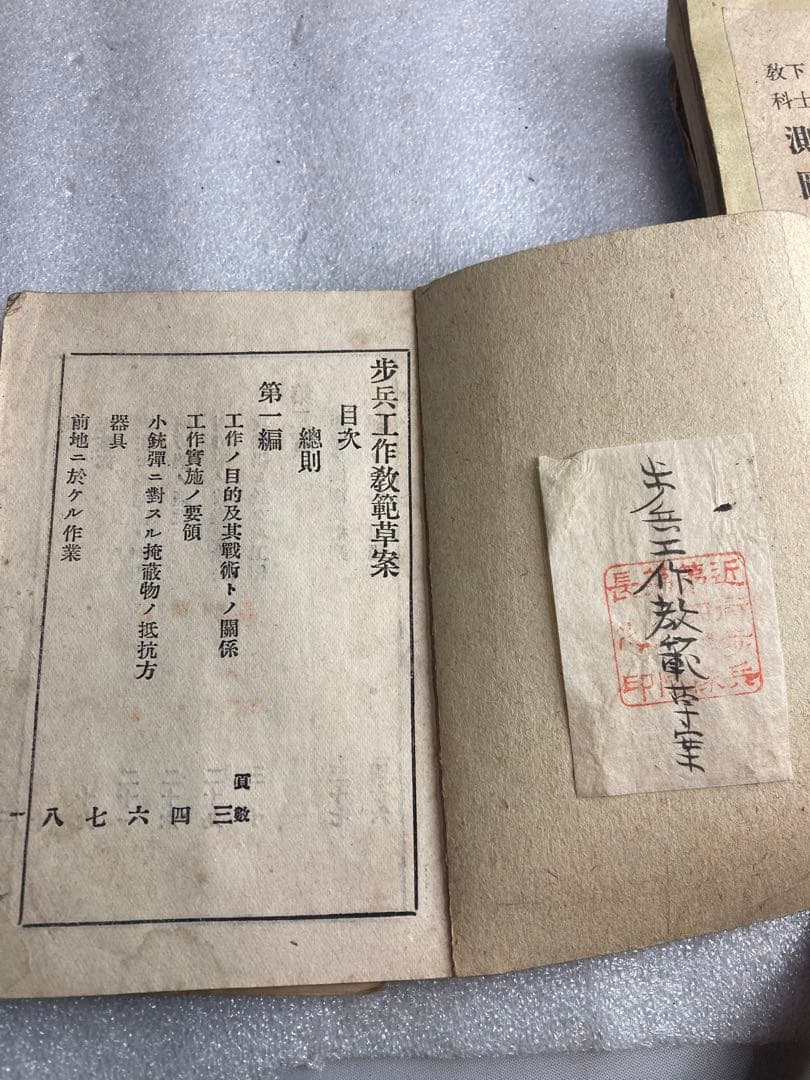 下士
教科
步兵工作教範草案
近衛步兵
步兵工作教範草案
目次
總則
第一編
頁數
工作ノ目的及其戰術トノ關係 三
工作實施ノ要領 四
小銃彈ニ對スル掩蔽物ノ抵抗力 六
器具 七
前地ニ於ケル作業 八